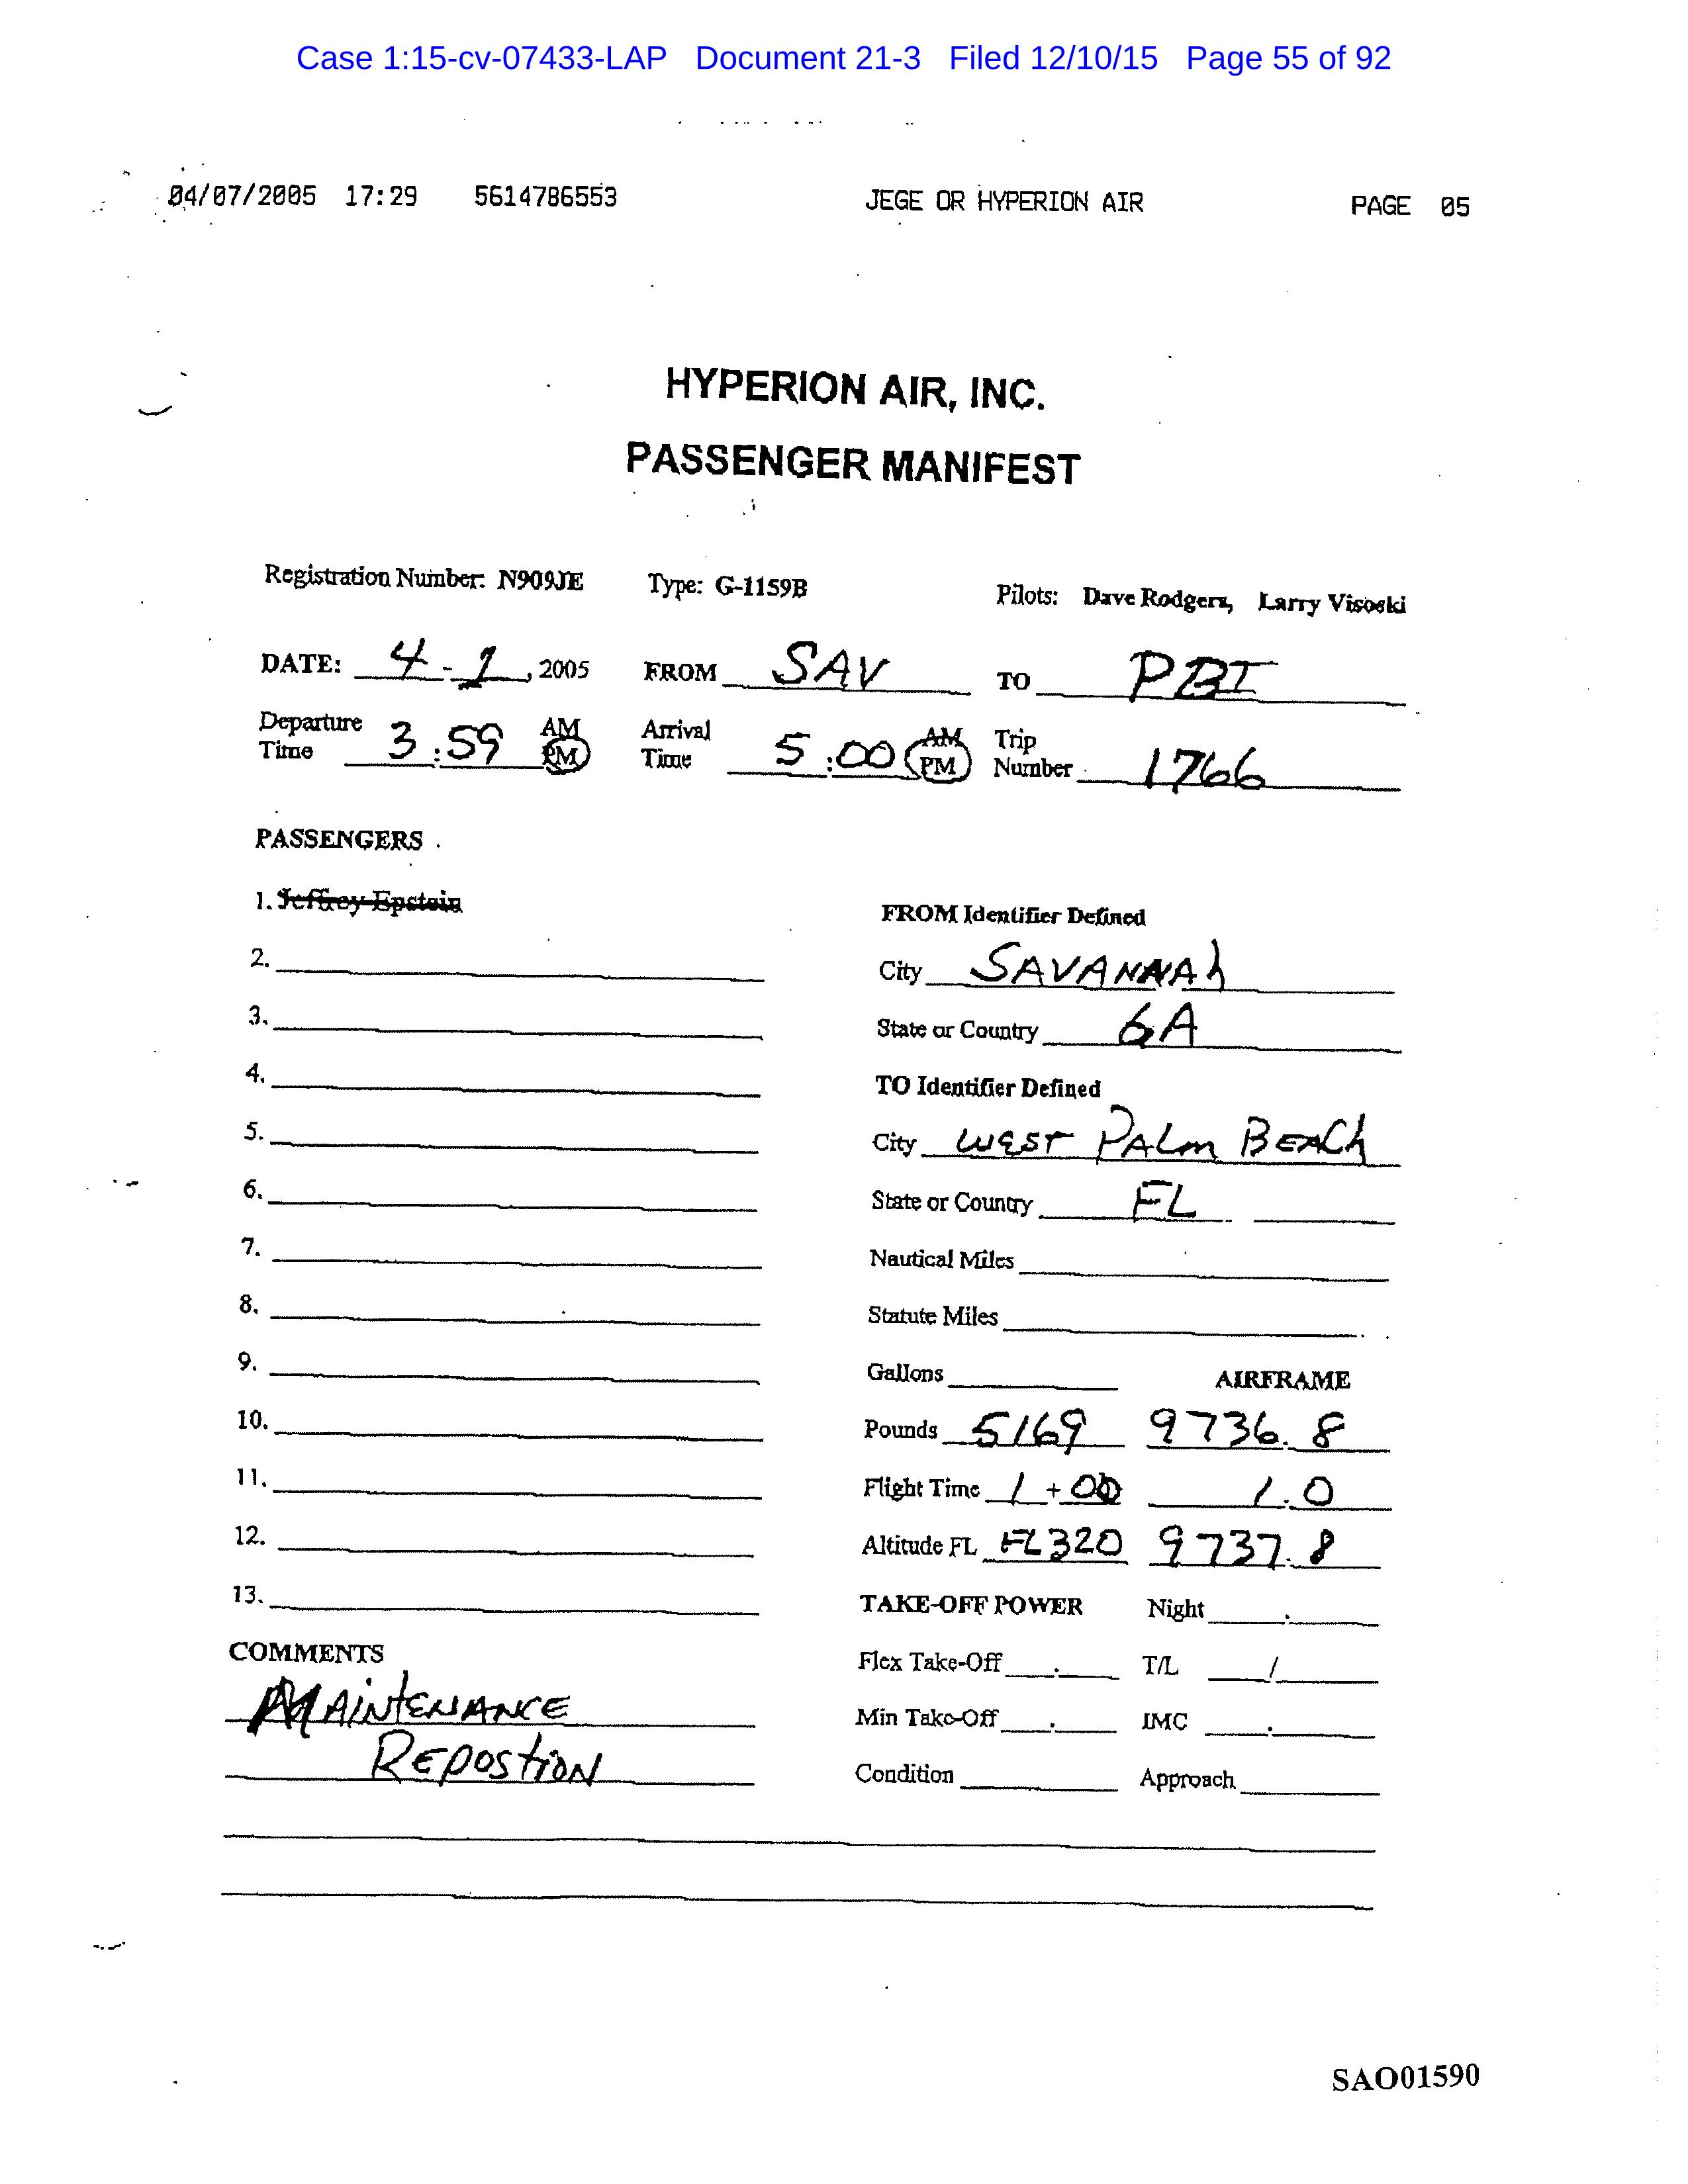 Case 1:15-cv-07433-LAP Document 21-3 Filed 12/10/15 Page 55 of 92
04/07/2005 17:29 5614786553 JEGE OR HYPERION AIR PAGE 05
HYPERION AIR, INC.
PASSENGER MANIFEST
Registration Number: N909JE Type: G-1159B Pilots: Dave Rodgers, Larry Visoski
DATE: 4-1, 2005 FROM SAV TO PBI
Departure Time 3:59 AM PM Arrival Time 5:00 AM PM Trip Number 1766
PASSENGERS
1. Jeffrey Epstein
FROM Identifier Defined
2.
City SAVANNAh
3.
State or Country GA
4.
TO Identifier Defined
5.
City WEST PALm BEACh
6.
State or Country FL
7.
Nautical Miles
8.
Statute Miles
9.
Gallons AIRFRAME
10.
Pounds 5169 9736.8
11.
Flight Time 1+00 1.0
12.
Altitude FL FL320 9737.8
13.
TAKE-OFF POWER Night
COMMENTS
Flex Take-Off T/L /
MAINtENANCE
Min Take-Off IMC
REPOStiON
Condition Approach
SAO01590